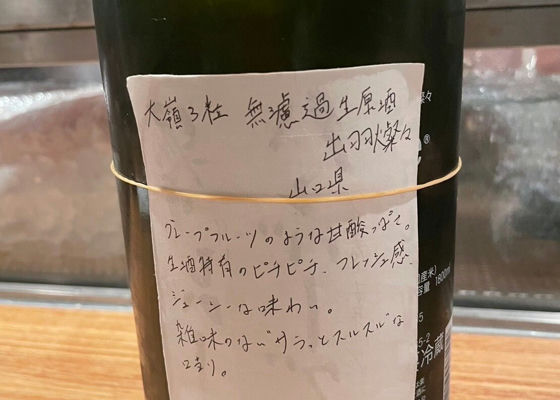 大嶺3粒 無濾過生原酒
出羽燦々
山口県
グレープフルーツのような甘酸っぱさ。
生酒特有のピチピチ、フレッシュ感
ジューシーな味わい。
雑味のないサラっとスルスルな
々
®
産米)
容量 1800ml
冷蔵